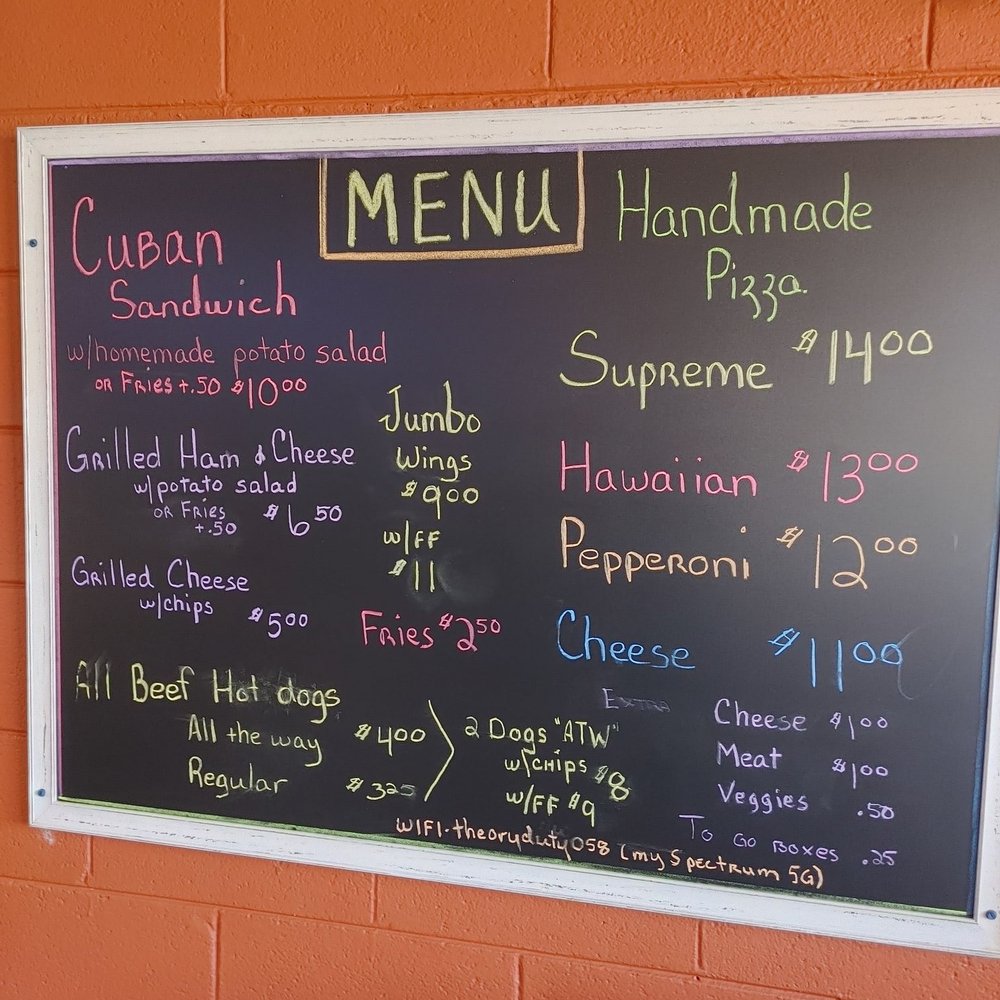 MENU
Cuban
Sandwich
w/homemade potato salad
or Fries +.50 $10.00
Grilled Ham & Cheese
w/potato salad
or Fries
+.50 $6.50
Grilled Cheese
w/chips $5.00
Jumbo
Wings
$9.00
w/FF
$11
Fries $2.50
All Beef Hot dogs
All the way $4.00
Regular $3.25
2 Dogs "ATW"
w/chips $8
w/FF $9
Handmade
Pizza.
Supreme $14.00
Hawaiian $13.00
Pepperoni $12.00
Cheese $11.00
Extra Cheese $1.00
Meat $1.00
Veggies .50
To Go Boxes .25
WIFI-theoryduty058 (mySpectrum 5G)